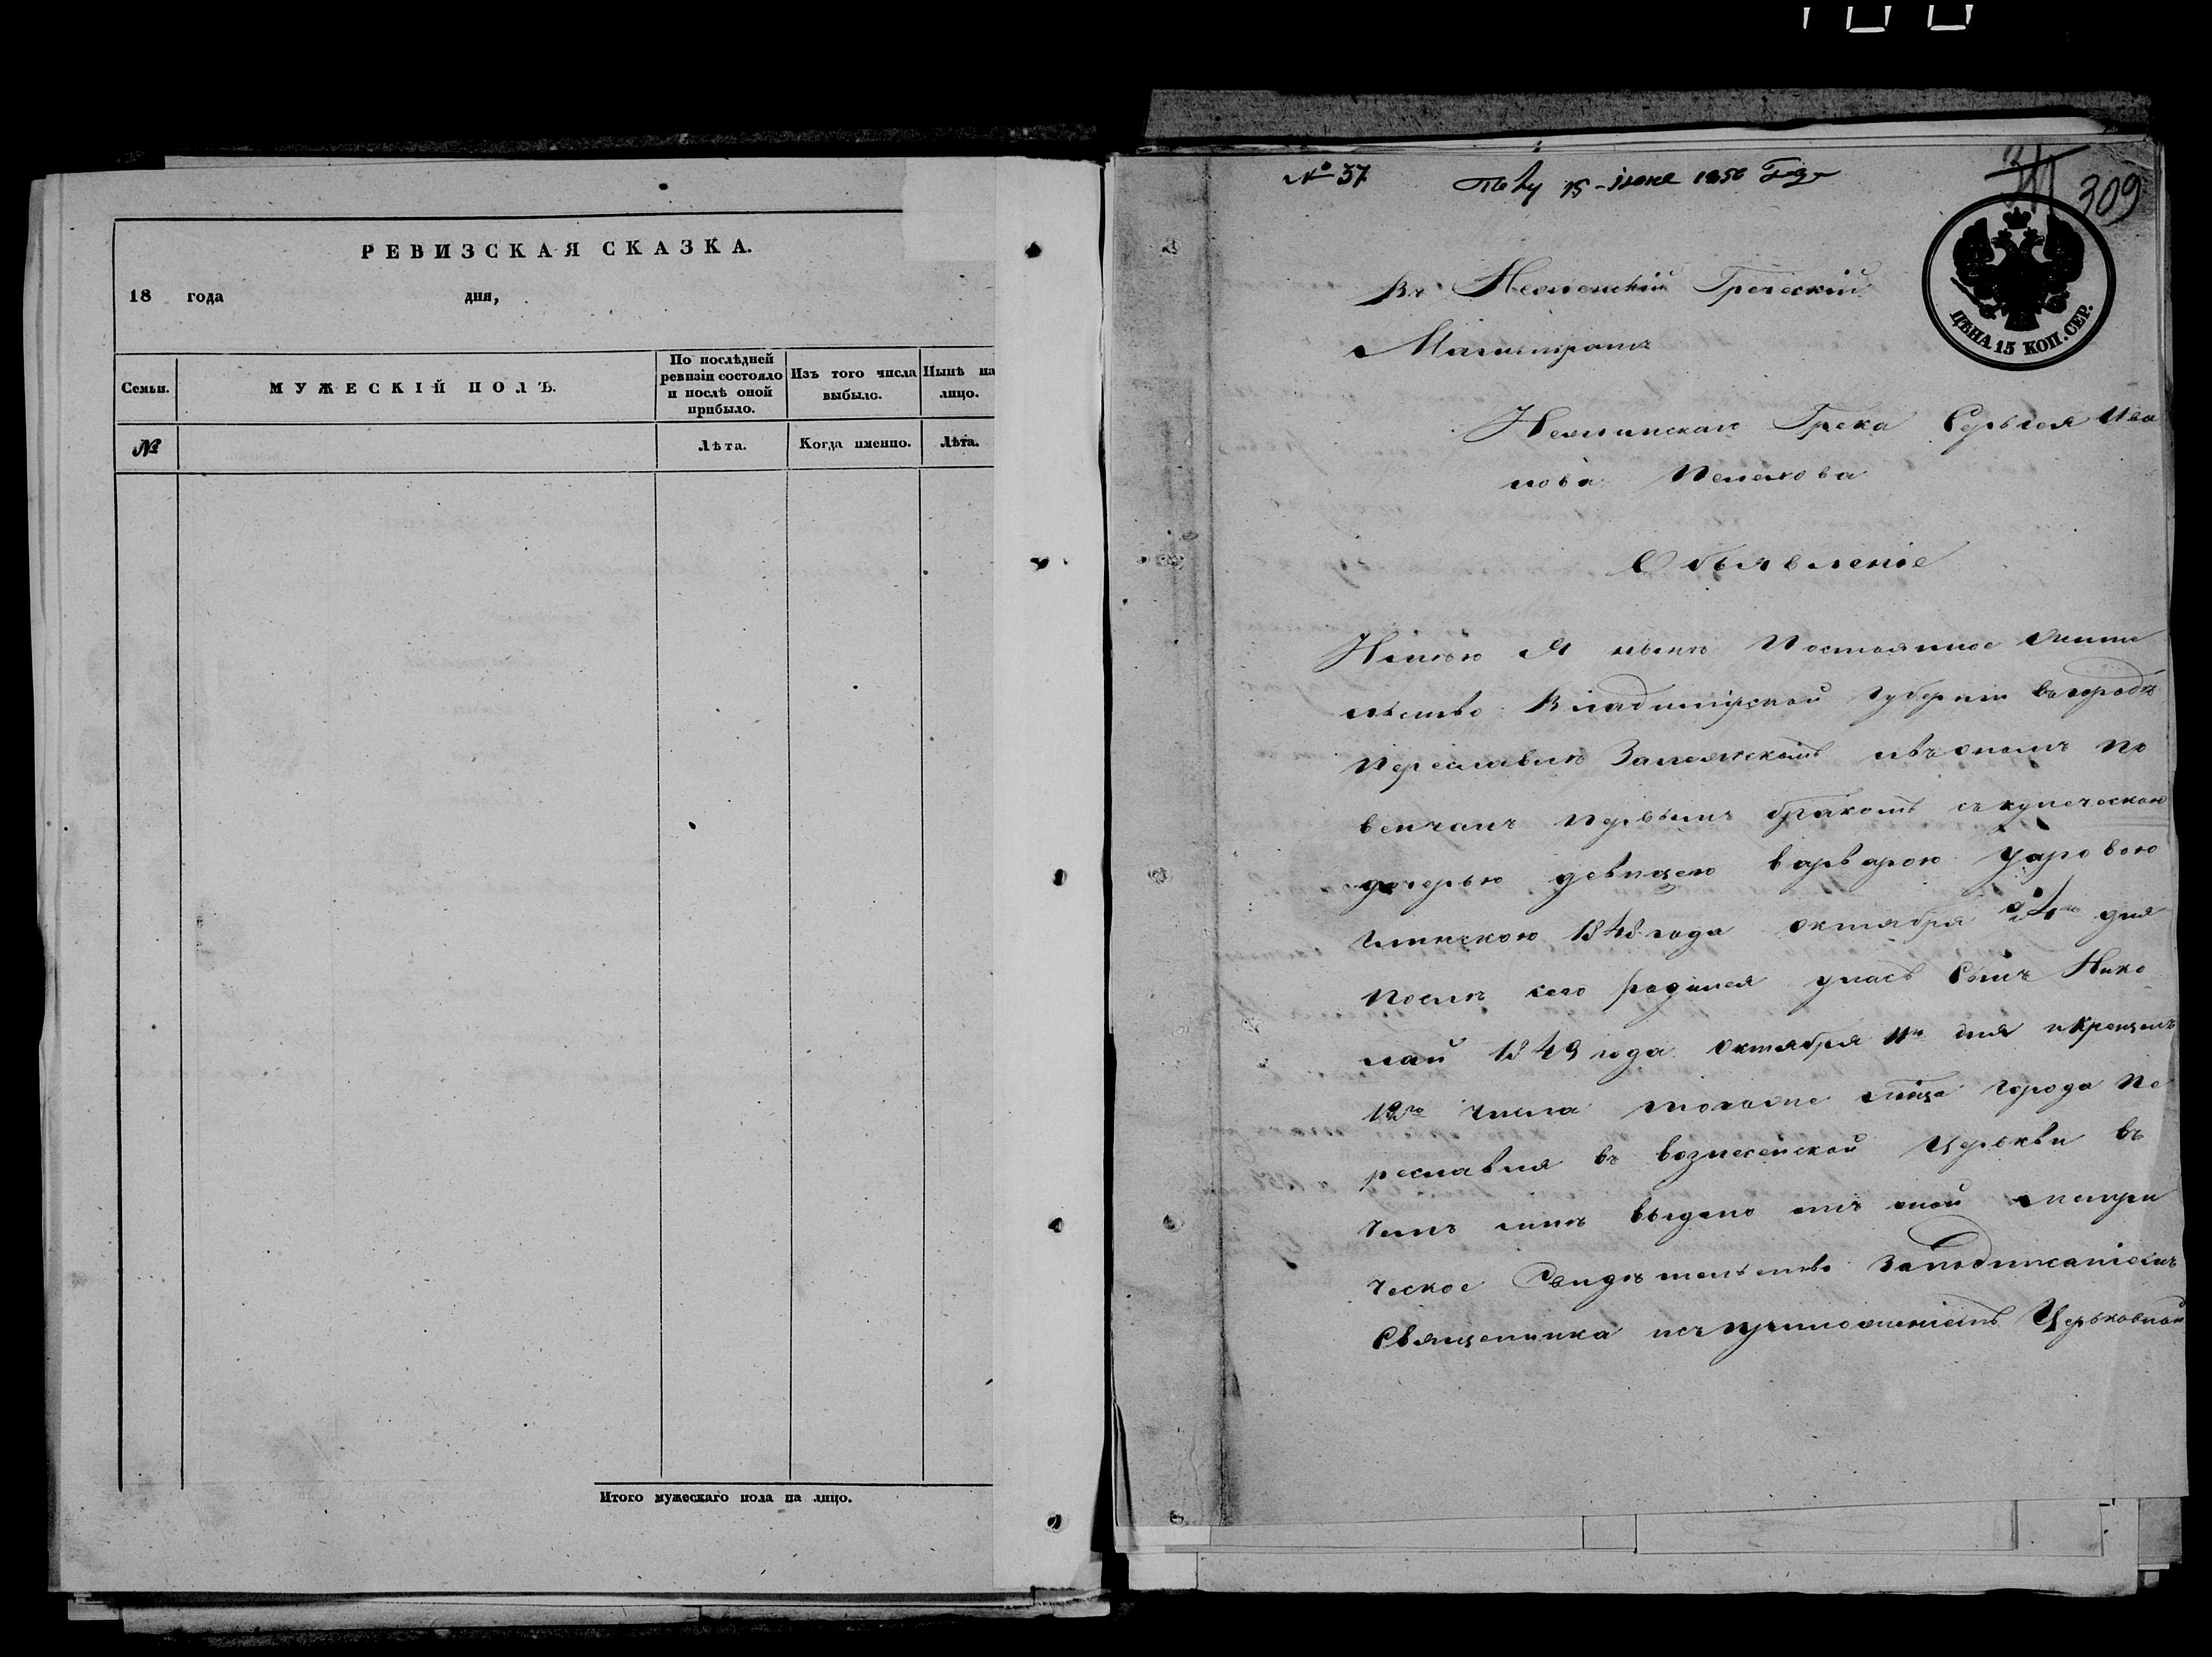 РЕВИЗСКАЯ СКАЗКА.
18 года дня,
Семьи.
МУЖЕСКІЙ ПОЛЪ.
По послѣдней
ревизіи состояло
и послѣ оной
прибыло.
Изъ того числа
выбыло.
Нынѣ на
лицо.
№
Лѣта.
Когда именно.
Лѣта.
Итого мужескаго пола на лицо.
№ 37
15 - іюня 1850 Года
309
ЦѢНА 15 КОП. СЕР.
Въ Нежинскій Греческій
Магистратъ
Нежинскаго Грека Сергея Ива
нова
Объявленіе
Имѣю Я нынѣ Постоянное жите
льство Владимірской Губерніи въ городѣ
Переславлѣ Залежскомъ Повѣнчанъ по
венчанъ первымъ бракомъ съ купеческою
дочерью девицею варварою
1848 года октября 24 дня
после чего родился у насъ Сынъ Нико
лай 1849 года Октября 11го дня и Крещенъ
12го числа тогоже мѣсяца города Пе
реславля въ вознесенской Церькви въ
чемъ мнѣ выдано отъ оной метри
ческое Свидѣтельство Заподписаніемъ
Священника исъ приложеніемъ Церьковной